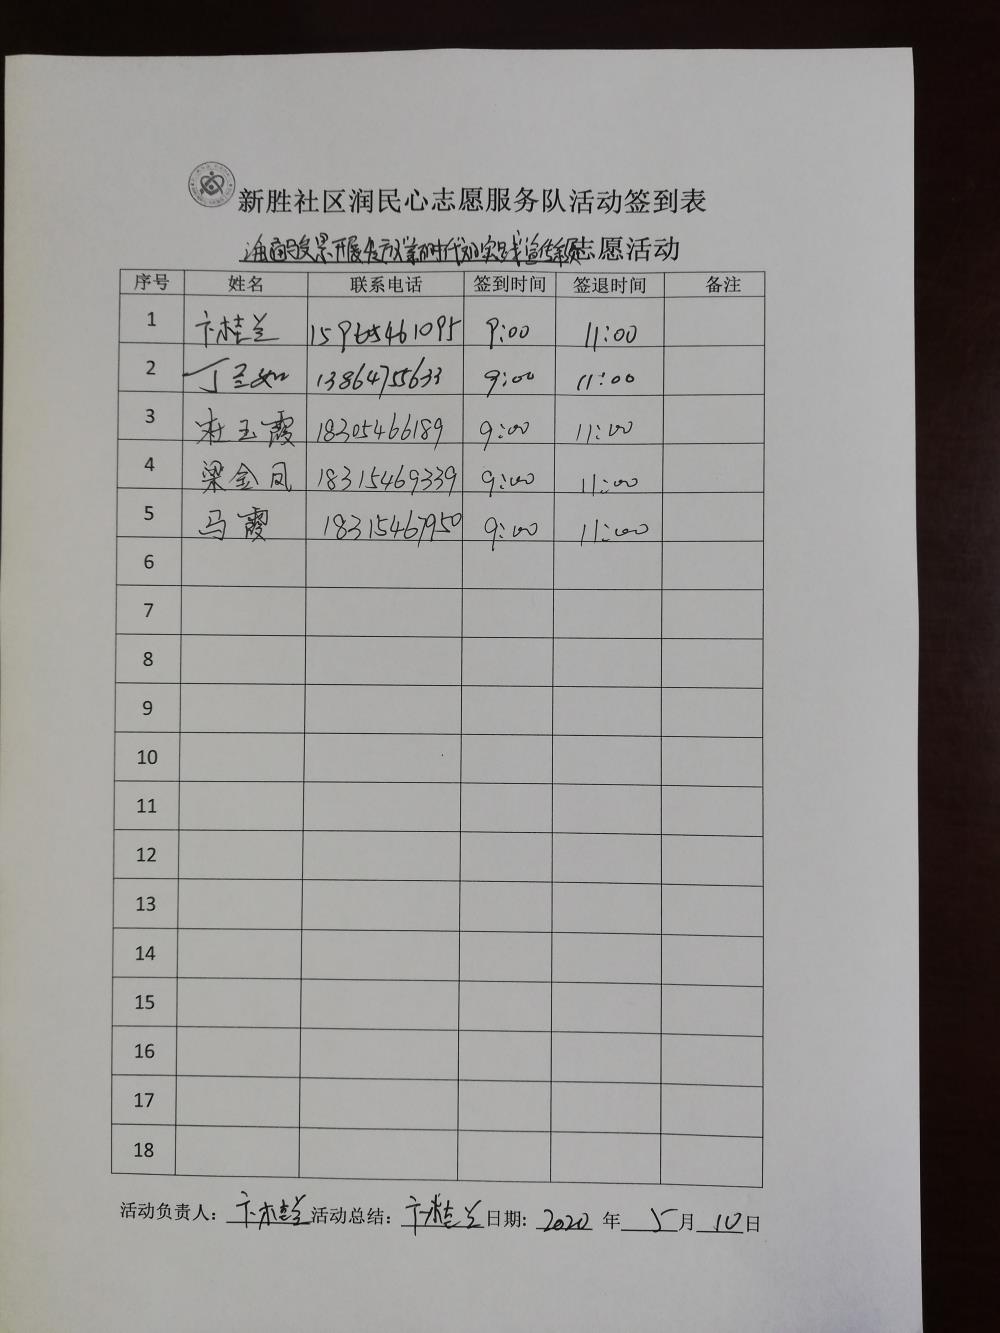 新胜社区润民心志愿服务队活动签到表
志愿活动
序号 姓名 联系电话 签到时间 签退时间 备注
1 卞桂兰 15965461095 9:00 11:00
2 丁 13864755633 9:00 11:00
3 杜玉霞 18305466189 9:00 11:00
4 梁金凤 18315469339 9:00 11:00
5 马霞 18315467950 9:00 11:00
6
7
8
9
10
11
12
13
14
15
16
17
18
活动负责人: 卞桂兰 活动总结: 卞桂兰 日期: 2020 年 5 月 10 日